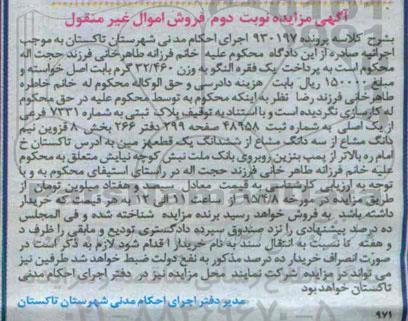 آگهی مزایده نوبت دوم فروش اموال غیر منقول
بشرح کلاسه پرونده ۹۳۰۱۹۷ اجرای احکام مدنی شهرستان تاکستان به موجب
اجرائیه صادره از این دادگاه محکوم علیه خانم فرزانه طاهرخانی فرزند حجت اله
محکوم است به پرداخت یک فقره النگو به وزن ۳۲/۴۶۰ گرم بابت اصل خواسته و
مبلغ ۱۵۰۰۰۰ ریال بابت هزینه دادرسی و حق الوکاله محکوم له خانم خاطره
طاهرخانی فرزند رضا نظر به اینکه محکوم به توسط محکوم علیه در حق محکوم
له کارسازی نگردیده است و با استناد به توقیف پلاک ثبتی به شماره ۷۳۳۱ فرعی
از یک اصلی به شماره ثبت ۴۸۹۵۸ صفحه ۳۹۹ دفتر ۲۶۶ بخش ۸ قزوین نیم
دانگ مشاع از سه دانگ مشاع از ششدانگ یک قطعه زمین به آدرس تاکستان خ
امام ره بالاتر از پمپ بنزین روبروی بانک ملت نبش کوچه نیایش متعلق به محکوم
علیه خانم فرزانه طاهر خانی فرزند حجت اله در راستای استیفای محکوم به و با
توجه به ارزیابی کارشناسی به قیمت معادل صد و هفتاد میلیون تومان از
طریق مزایده در مورخه ۹۵/۴/۸ از ساعت ۱۱ الی ۱۲ به هر قیمت که خریدار
داشته باشد به فروش خواهد رسید برنده مزایده شناخته شده و فی المجلس
ده درصد پیشنهادی را نزد صندوق سپرده دادگستری تودیع و مابقی را ظرف د
و هفته تا نسبت به انتقال سند به نام خریدار اقدام شود لازم به ذکر است در
صورت انصراف خریدار ده درصد مذکور به نفع دولت ضبط خواهد شد طرفین نیز
می تواند در مزایده شرکت نمایند محل مزایده نیز در دفتر اجرای احکام مدنی
تاکستان خواهد بود
مدیر دفتر اجرای احکام مدنی شهرستان تاکستان
۹۷۱